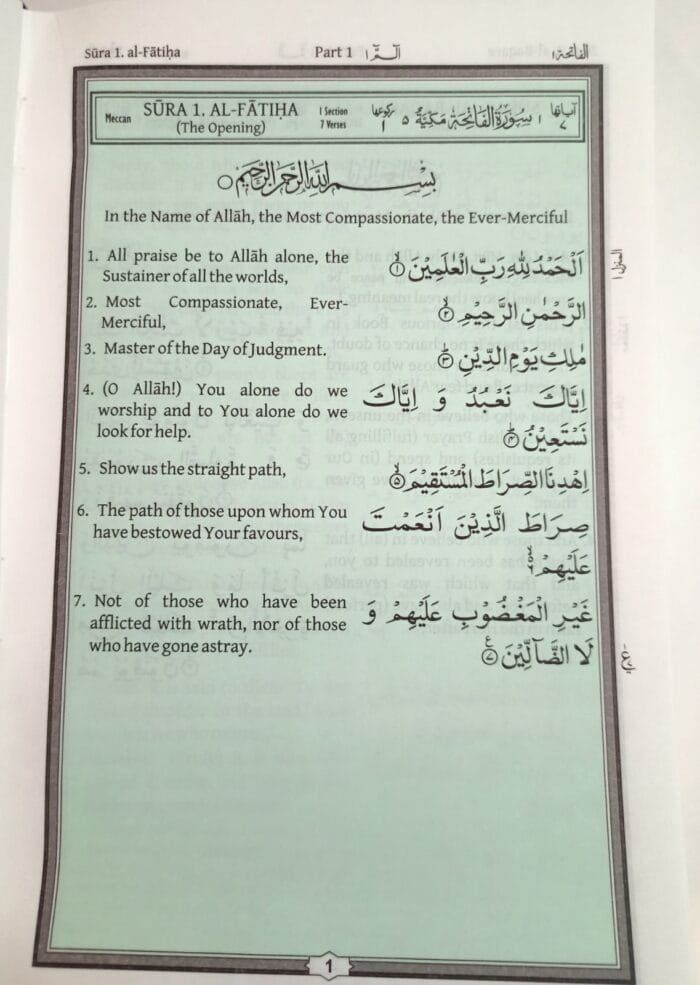 Sūra 1. al-Fātiḥa Part 1 الٓمّٓ ١ الفاتحة ١
Meccan SŪRA 1. AL-FĀTIḤA 1 Section رکوعها ١ سُوْرَةُ الْفَاتِحَةِ مَكِّيَّةٌ ٥ اٰیاتها ٧
(The Opening) 7 Verses
بِسْمِ اللّٰهِ الرَّحْمٰنِ الرَّحِيْمِ
In the Name of Allāh, the Most Compassionate, the Ever-Merciful
1. All praise be to Allāh alone, the
Sustainer of all the worlds,
اَلْحَمْدُ لِلّٰهِ رَبِّ الْعٰلَمِيْنَ ۙ﴿۱﴾
المنزل ١
2. Most Compassionate, Ever-
Merciful,
الرَّحْمٰنِ الرَّحِيْمِ ۙ﴿۲﴾
3. Master of the Day of Judgment.
مٰلِكِ يَوْمِ الدِّيْنِ ؕ﴿۳﴾
4. (O Allāh!) You alone do we
worship and to You alone do we
look for help.
اِيَّاكَ نَعْبُدُ وَ اِيَّاكَ
نَسْتَعِيْنُ ؕ﴿۴﴾
5. Show us the straight path,
اِهْدِنَا الصِّرَاطَ الْمُسْتَقِيْمَ ۙ﴿۵﴾
6. The path of those upon whom You
have bestowed Your favours,
صِرَاطَ الَّذِيْنَ اَنْعَمْتَ
عَلَيْهِمْ
7. Not of those who have been
afflicted with wrath, nor of those
who have gone astray.
غَيْرِ الْمَغْضُوْبِ عَلَيْهِمْ وَ
لَا الضَّآلِّيْنَ ﴿۷﴾
ع
1